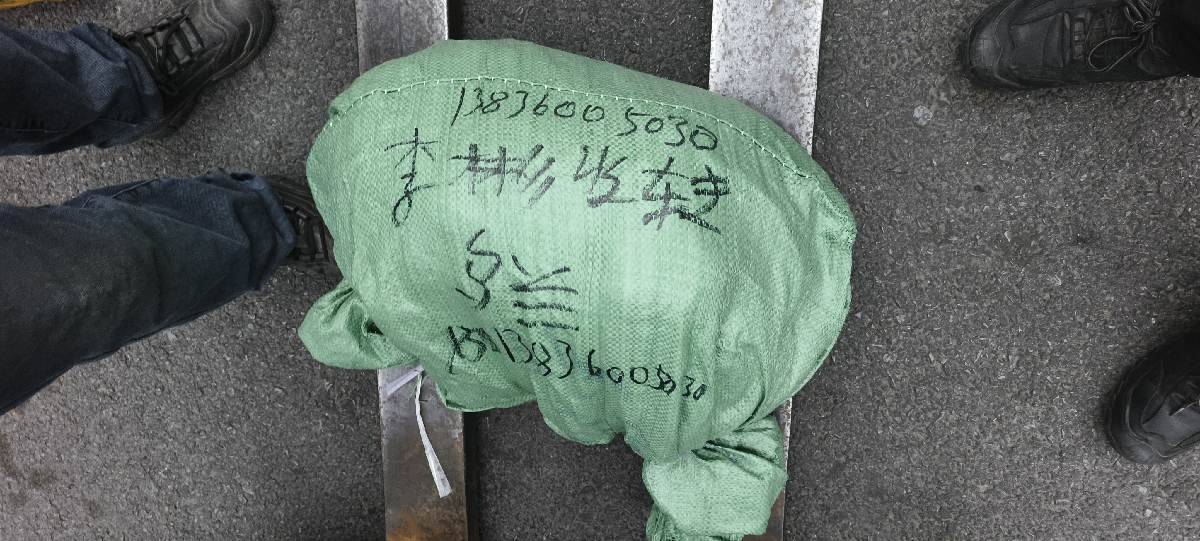 13836005030
李彬收转
乌兰
13836005030